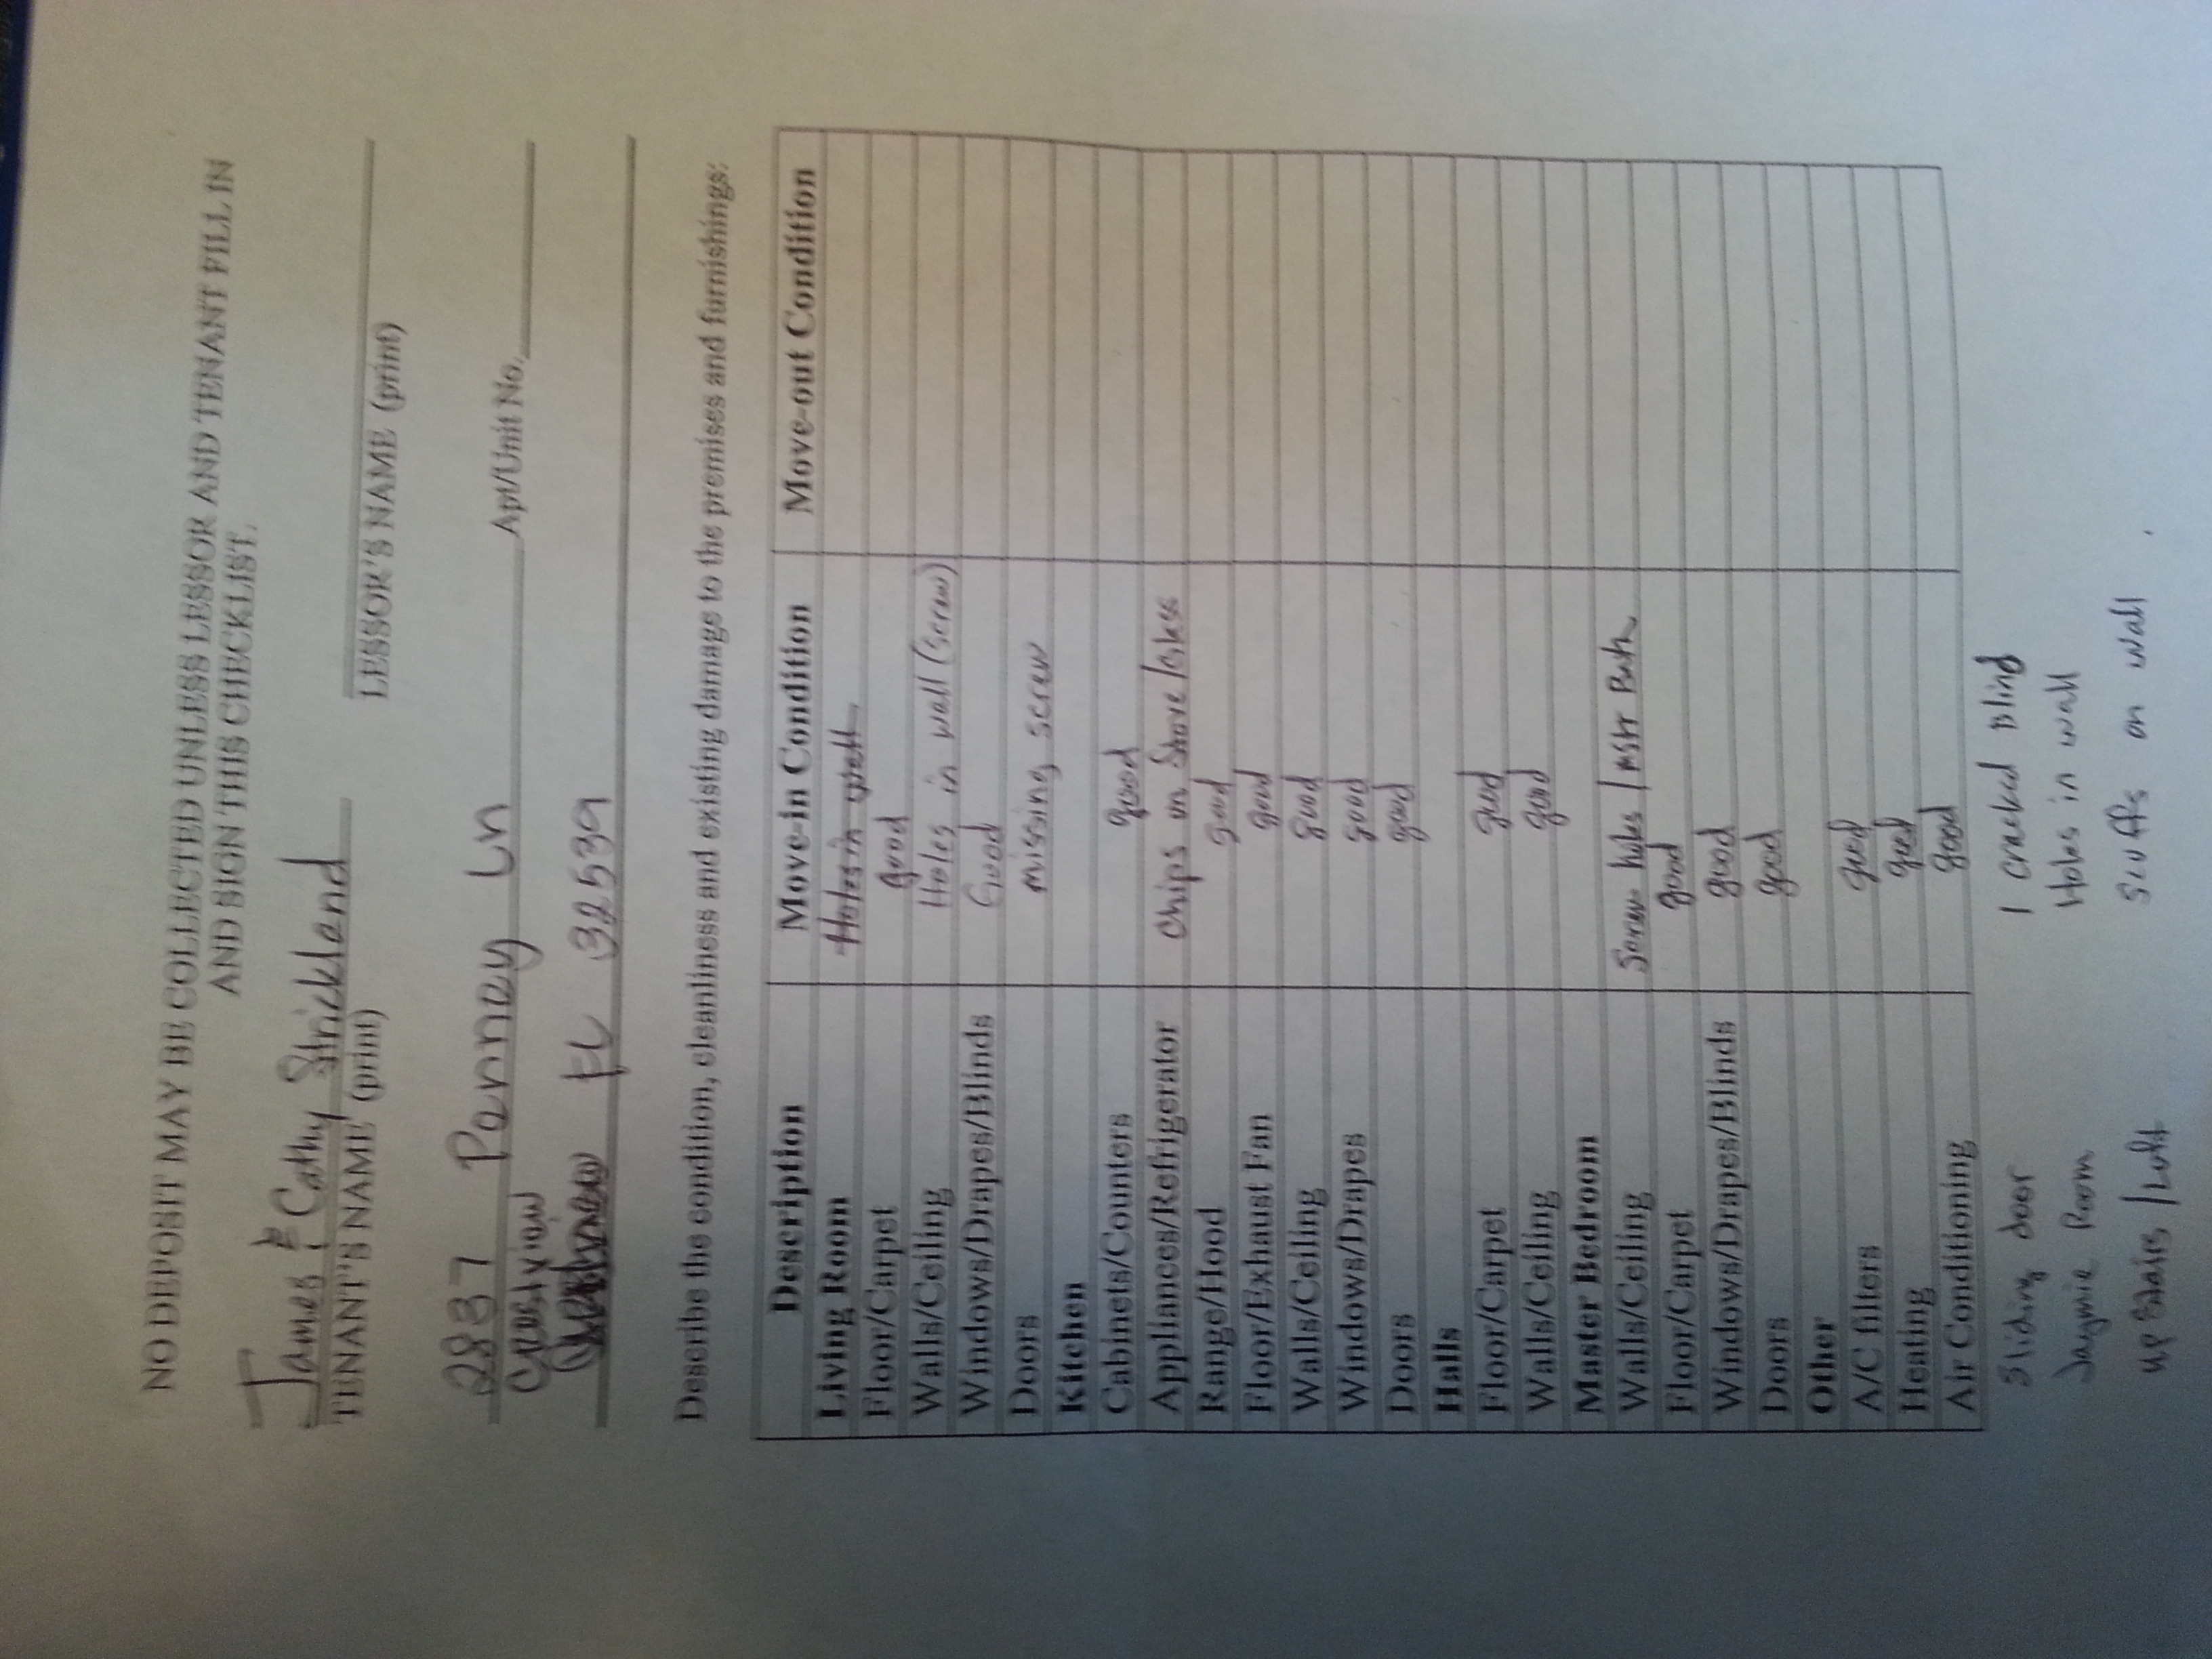 NO DEPOSIT MAY BE COLLECTED UNLESS LESSOR AND TENANT FILL IN
AND SIGN THIS CHECKLIST.
James & Cathy Strickland
TENANT'S NAME (print) LESSOR'S NAME (print)
2837 Pannay Ln Apt/Unit No.
Crestview
FL 322539
Describe the condition, cleanliness and existing damage to the premises and furnishings:
Description Move-in Condition Move-out Condition
Living Room Holes in wall
Floor/Carpet good
Walls/Ceiling Holes in wall (screw)
Windows/Drapes/Blinds Good
Doors missing screw
Kitchen
Cabinets/Counters good
Appliances/Refrigerator chips on Stove/Glass
Range/Hood good
Floor/Exhaust Fan good
Walls/Ceiling good
Windows/Drapes good
Doors good
Halls
Floor/Carpet good
Walls/Ceiling good
Master Bedroom
Walls/Ceiling Screw holes / Mstr Bath
Floor/Carpet good
Windows/Drapes/Blinds good
Doors good
Other
A/C filters good
Heating good
Air Conditioning good
Sliding door 1 cracked Blind
Jaymie Room Holes in wall
up stairs / Loft scuffs on wall